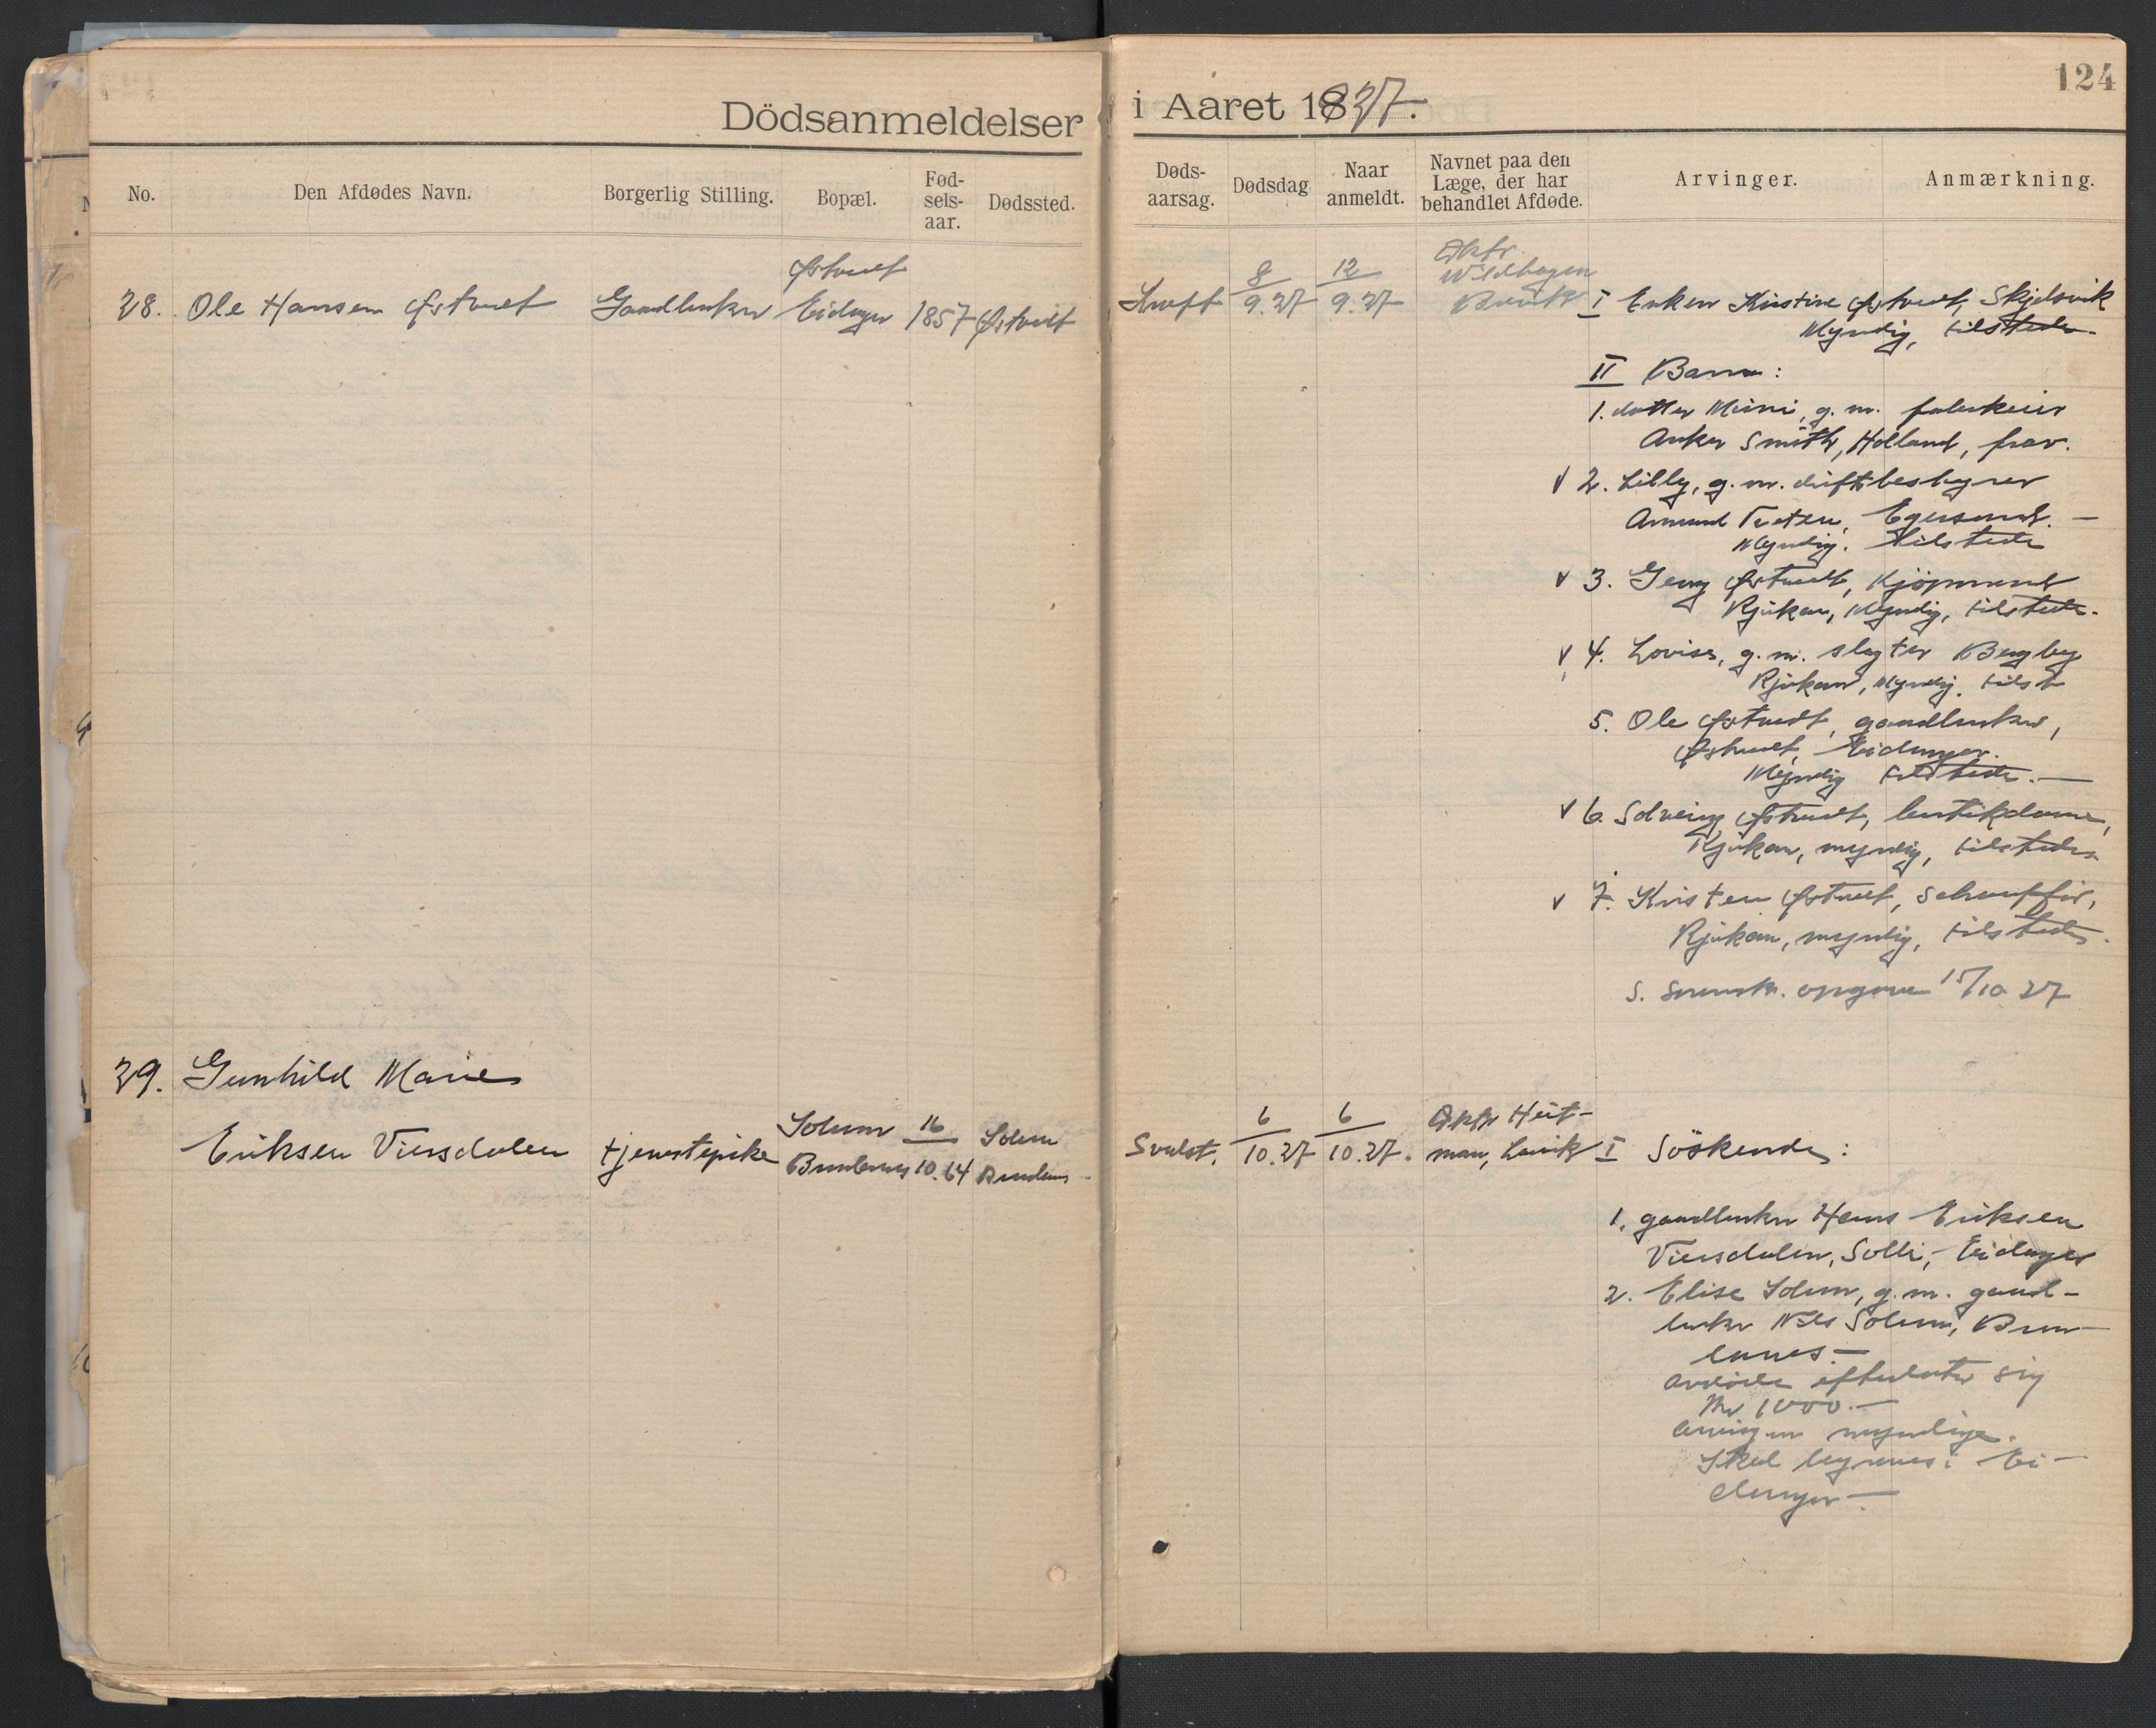 124
Dödsanmeldelser i Aaret 1927.
No. Den Afdødes Navn. Borgerlig Stilling. Bopæl. Fød-sels-aar. Dødssted. Døds-aarsag. Dødsdag Naar anmeldt. Navnet paa den Læge, der har behandlet Afdøde. Arvinger. Anmærkning.
28. Ole Hansen Østvedt Gaardbruker Østvedt Eidanger 1857 Østvedt Kræft 8/9.27 12/9.27 Dktr. Wildhagen Brevik
I Enken Kristine Østvedt, Skjelsvik
Myndig, tilstede.
II Barn:
1. datter Mimi, g. m.
Anker Smith, Holland, frav.
v 2. Lilly, g. m. driftsbestyrer
Amund Tveten, Egersund. —
Myndig. tilstede
v 3. Georg Østvedt, Kjöpmand
Rjukan, Myndig, tilstede.
v 4. Lovise, g. m. slagter Bergby
Rjukan, Myndig. tilst
5. Ole Østvedt, gaardbruker,
Østvedt, Eidanger.
Myndig tilstede. —
v 6. Solveig Østvedt, butikdame,
Rjukan, myndig, tilstede.
v 7. Kristen Østvedt, Schauffør,
Rjukan, myndig, tilstede.
S. opgave 15/10 27
29. Gunhild Marie
Eriksen Viersdalen tjenestepike Solum Brunlanes 16/10.64 Solum Brunlanes Svulst. 6/10.27 6/10.27. Dktr Heit-
man, Larvik I Söskende:
1. gaardbruker Hans Eriksen
Viersdalen, Solli, Eidanger
2. Elise Solum, g. m. gaard-
bruker Nils Solum, Brun-
lanes. —
Avdöde efterlater sig
Kr 1000. —
Arvingene myndige.
Skal begraves i Ei-
danger —